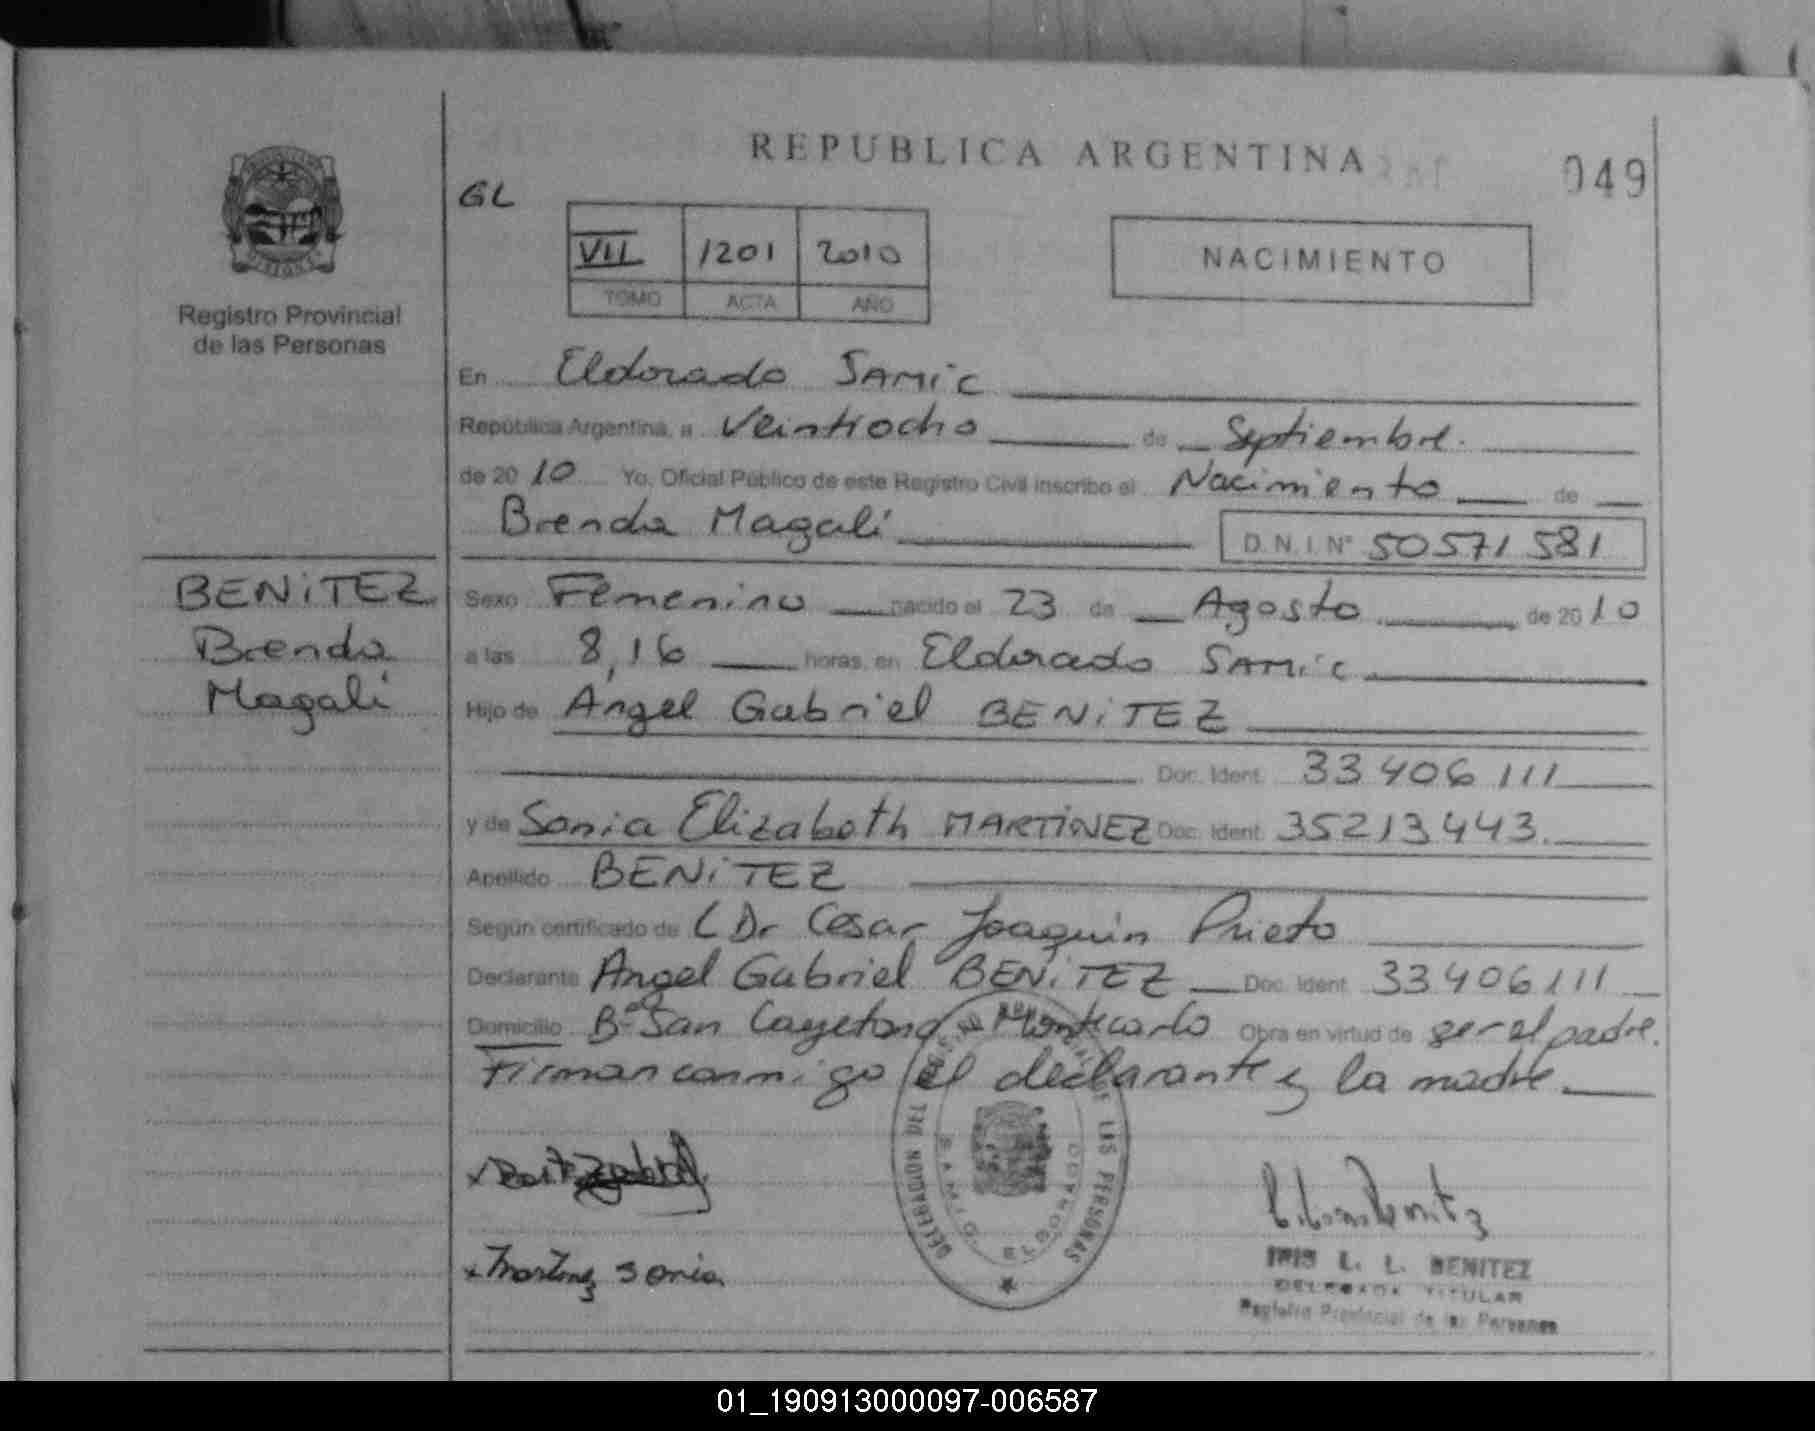 REPUBLICA ARGENTINA
049
GL
VII 1201 2010
TOMO ACTA AÑO
NACIMIENTO
Registro Provincial
de las Personas
En Eldorado SAMIC
República Argentina, a Veintiocho de Septiembre.
de 2010 Yo, Oficial Público de este Registro Civil inscribo el Nacimiento de
Brenda Magalí D.N.I. N° 50571581
BENITEZ
Brenda
Magalí
Sexo Femenino nacido el 23 de Agosto de 2010
a las 8,16 horas, en Eldorado SAMIC
Hijo de Angel Gabriel BENITEZ
Doc. Ident. 33406111
y de Sonia Elizabeth MARTINEZ Doc. Ident. 35213443.
Apellido BENITEZ
Según certificado de Dr Cesar Joaquin Prieto
Declarante Angel Gabriel BENITEZ Doc. Ident. 33406111
Domicilio B° San Cayetano Montecarlo Obra en virtud de ser el padre.
Firman conmigo el declarante y la madre.
DELEGADON DEL REGISTRO PROVINCIAL DE LAS PERSONAS
S.A.M.I.C. ELDORADO
Martinez Sonia
IRIS L. L. BENITEZ
DELEGADA TITULAR
Registro Provincial de las Personas
01_190913000097-006587